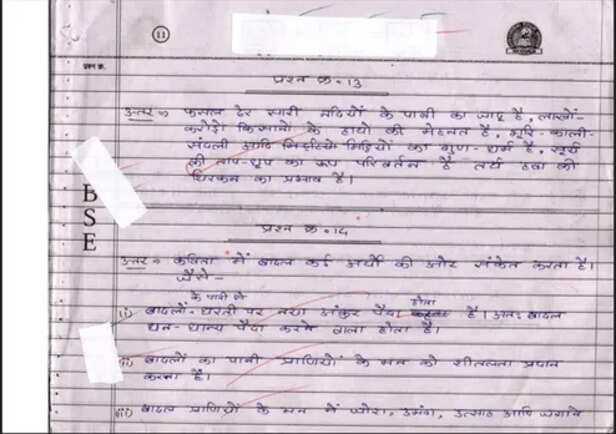 11
प्रश्न क्र.
प्रश्न क्र. 13
उत्तर ⇒ फसल ढेर सारी नदियों के पानी का जादू है, लाखों-
करोड़ो किसानों के हाथो की मेहनत है, भूरि-काली-
संदली आदि मिट्टियो मिट्टियों का गुण-धर्म है, सूर्य
की ताप-धूप का रूप परिवर्तन है तथा हवा की
थिरकन का प्रभाव है।
B
S
E
प्रश्न क्र. 14
उत्तर ⇒ कविता में बादल कई अर्थों की ओर संकेत करता है।
जैसे-
के पानी से होता
(i) बादलों धरती पर नया अंकुर पैदा है। अतः बादल
धन-धान्य पैदा करने वाला होता है।
(ii) बादलों का पानी प्राणियों के मन को शीतलता प्रदान
करता है।
(iii) बादल प्राणियों के मन में जोश, उमंग, उत्साह आदि जगाने